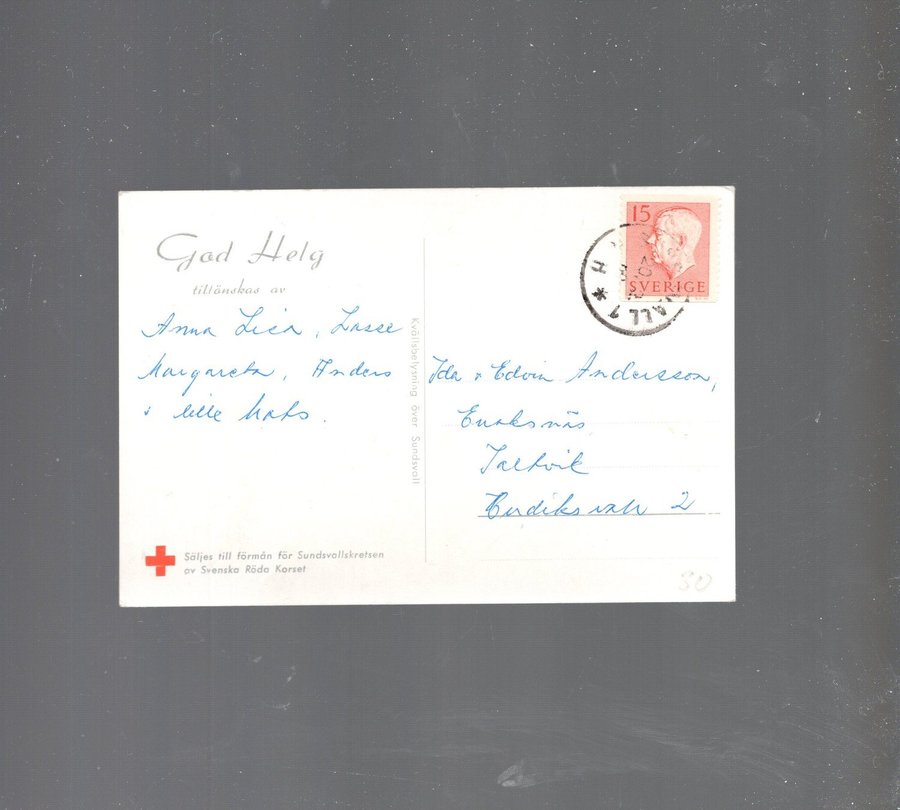 God Helg
tillönskas av
Anna Lisa, Lasse
Margareta, Anders
o lille Mats.
Säljes till förmån för Sundsvallskretsen
av Svenska Röda Korset
Kvällsbelysning över Sundsvall
15
SVERIGE
ALL 1 * H
Ida o Edvin Andersson,
Enaksnäs
Saltvik
Hudiksvall 2
80